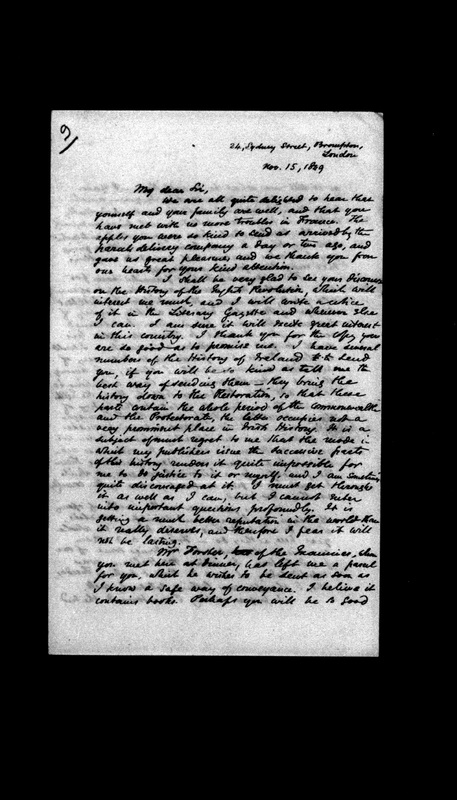 9/
24, Sydney Street, Brompton,
London
Nov. 15, 1849
My dear Sir,
We are all quite delighted to hear that
yourself and your family are well, and that you
have met with no more troubles in France. The
apples you were so kind to send us arrived by the
parcels delivery company a day or two ago, and
gave us great pleasure, and we thank you from
our hearts for your kind attention.
I shall be very glad to see your Discourse
on the History of the English Revolution, which will
interest me much, and I will write a notice
of it in the Literary Gazette and wherever else
I can. I am sure it will excite great interest
in this country. I thank you for the copy you
are so good as to promise me. I have several
numbers of the History of Ireland to send
you, if you will be so kind as tell me the
best way of sending them — they bring the
history down to the Restoration, so that these
parts contain the whole period of the Commonwealth
and the Protectorate, the latter occupies not a
very prominent place in Irish History. It is a
subject of much regret to me that the mode in
which my publishers issue the successive parts
of this history renders it quite impossible for
me to do justice to it or myself, and I am sometimes
quite discouraged at it. I must get through
it as well as I can, but I cannot enter
into important questions profoundly. It is
getting a much better reputation in the world than
it really deserves, and therefore I fear it will
not be lasting.
Mr Forster, of the Examiner, whom
you met here at dinner, has left me a parcel
for you, which he wishes to be sent as soon as
I know a safe way of conveyance. I believe it
contains books. Perhaps you will be so good